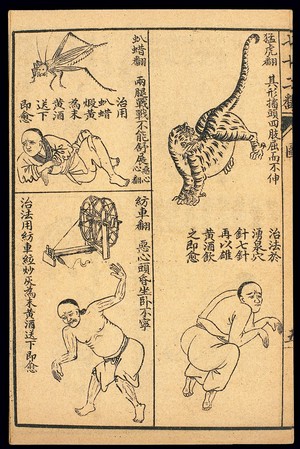 七十二翻圖
猛虎翻
其形摇頭四肢屈而不伸
治法於
湧泉穴
針七針
再以雄
黃酒飲
之即愈
蜡翻
兩腿戰戰不能舒展惡心翻心
治用
蜡
煅黃
為末
黃酒
送下
即愈
紡車翻
惡心頭昏坐臥不寧
治法用紡車絃炒灰為末黃酒送下即愈